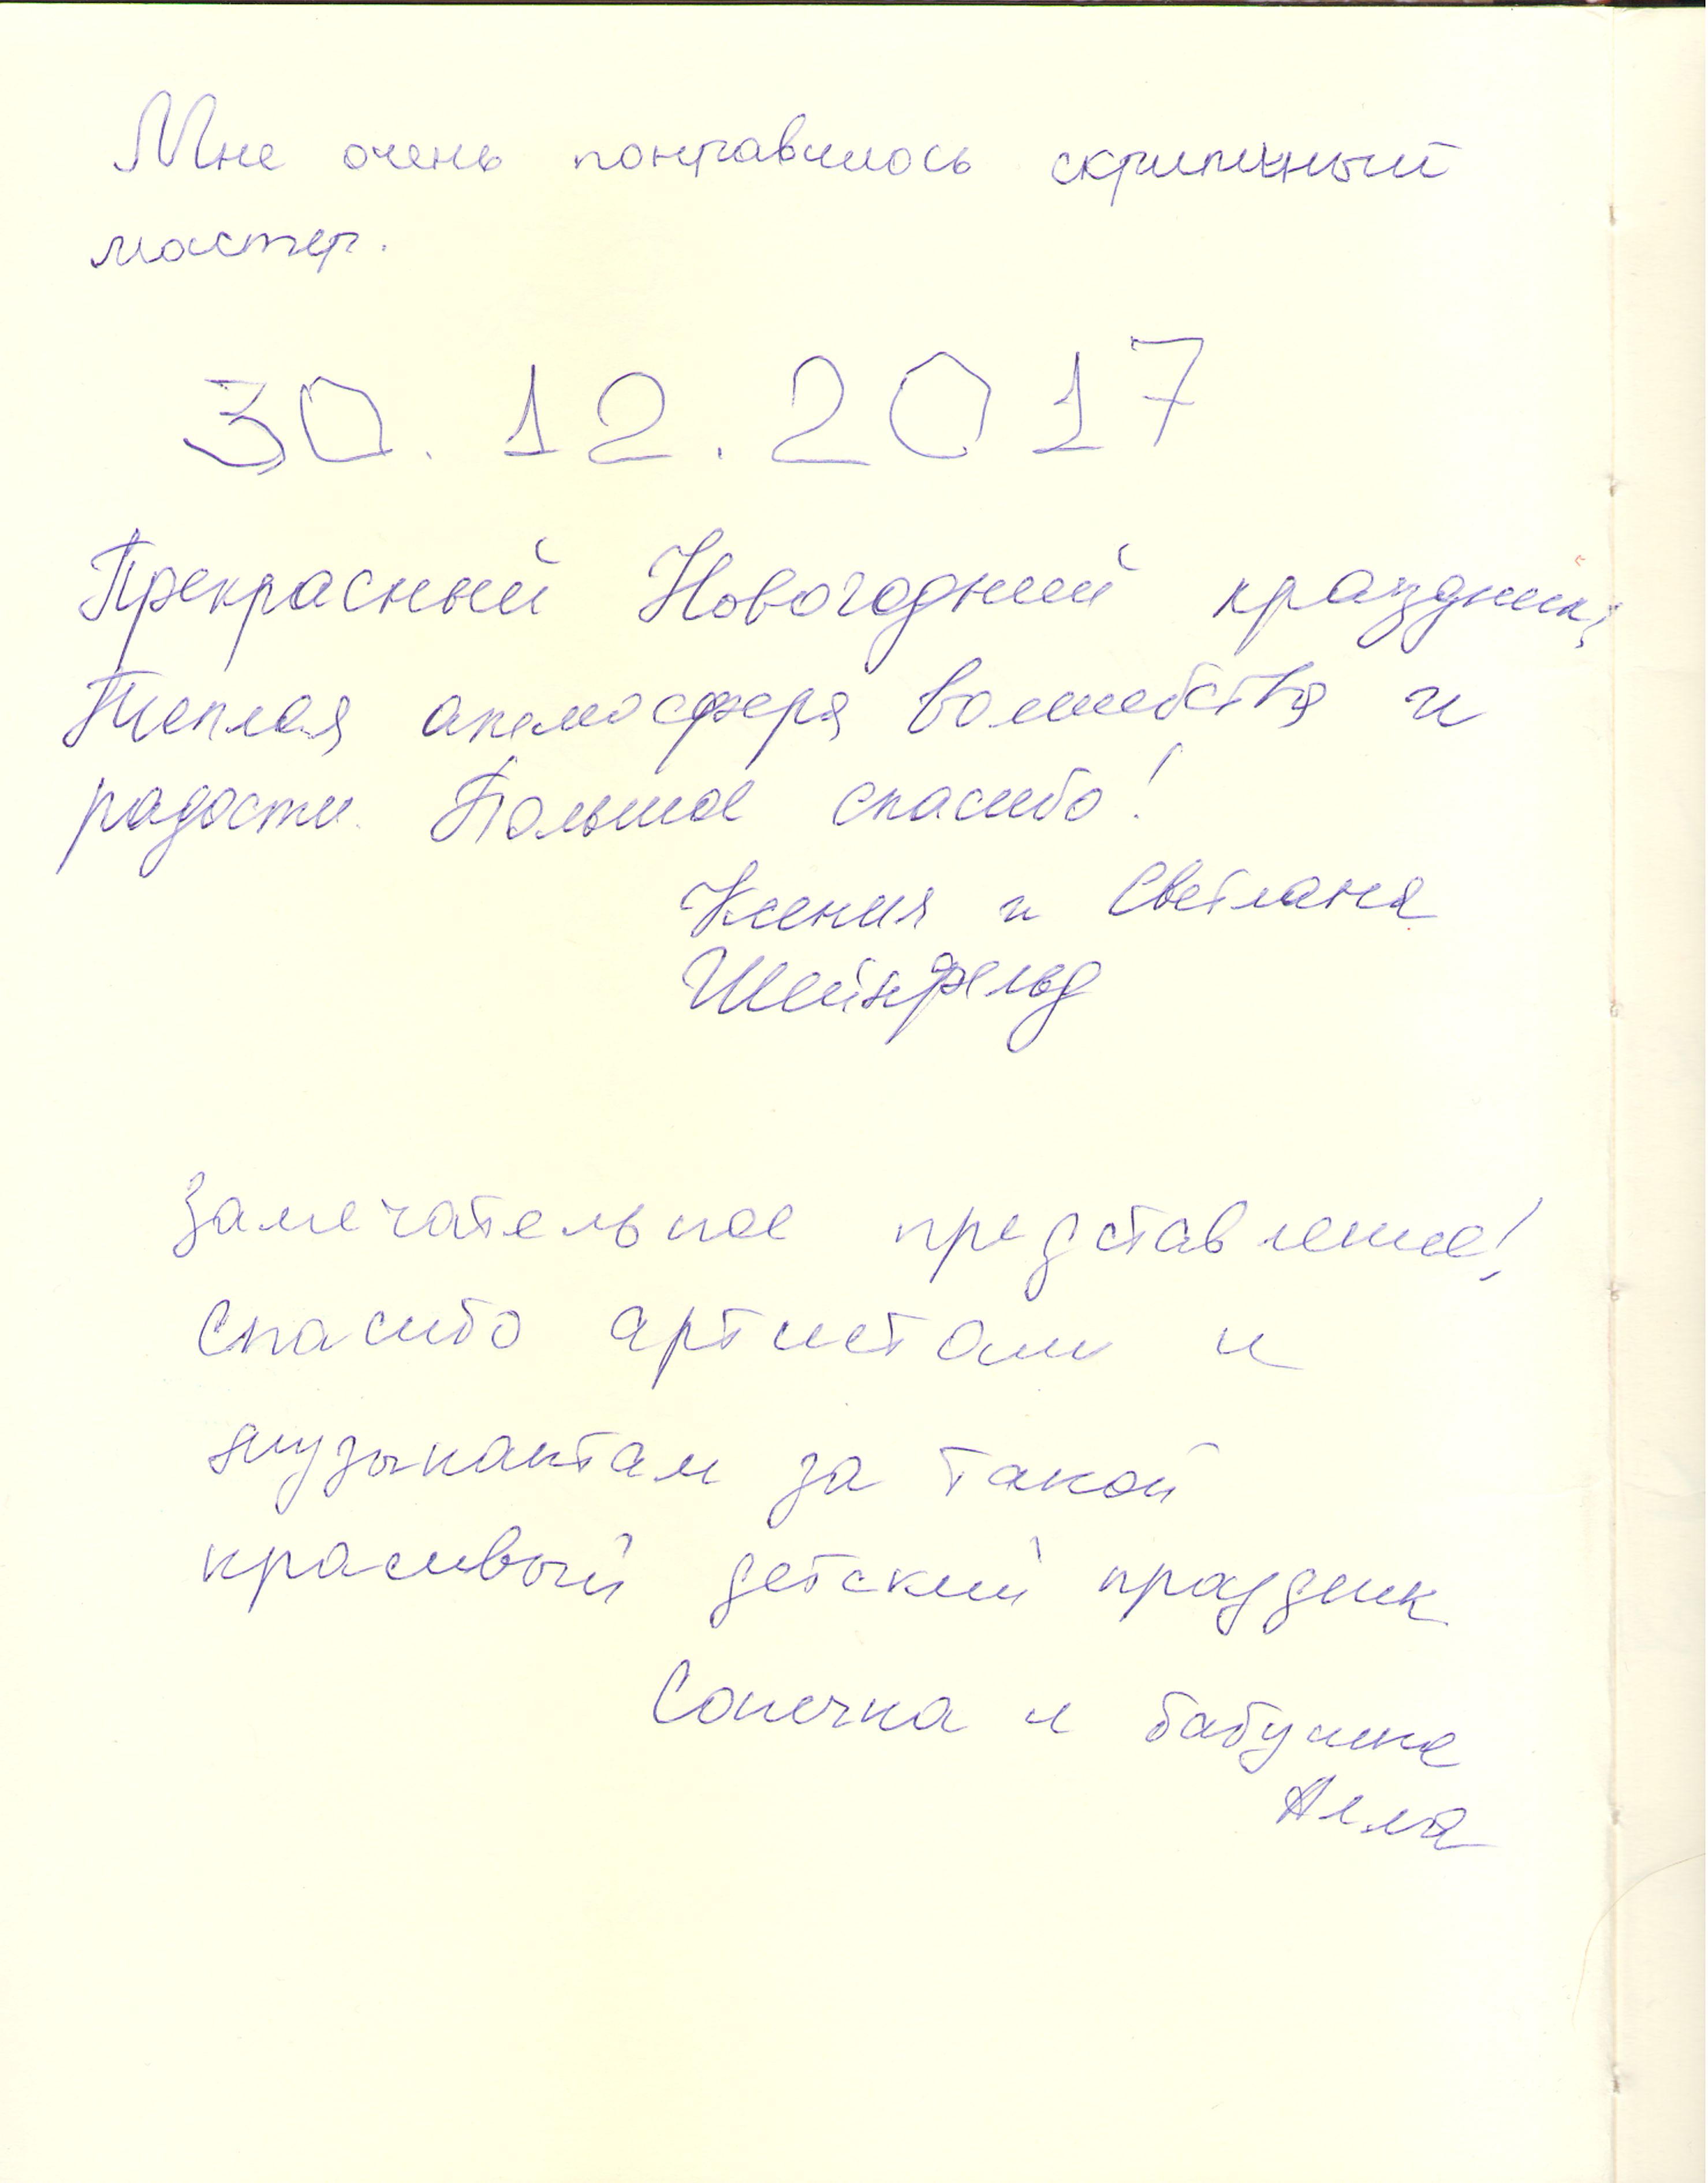 Мне очень понравилось скрипичный
мастер.
30.12.2017
Прекрасный Новогодний праздник,
Теплая атмосфера волшебства и
радости. Большое спасибо!
Ксения и Светлана
Шейнфельд
Замечательное представление!
Спасибо артистам и
музыкантам за такой
красивый детский праздник
Сонечка и бабушка
Алла